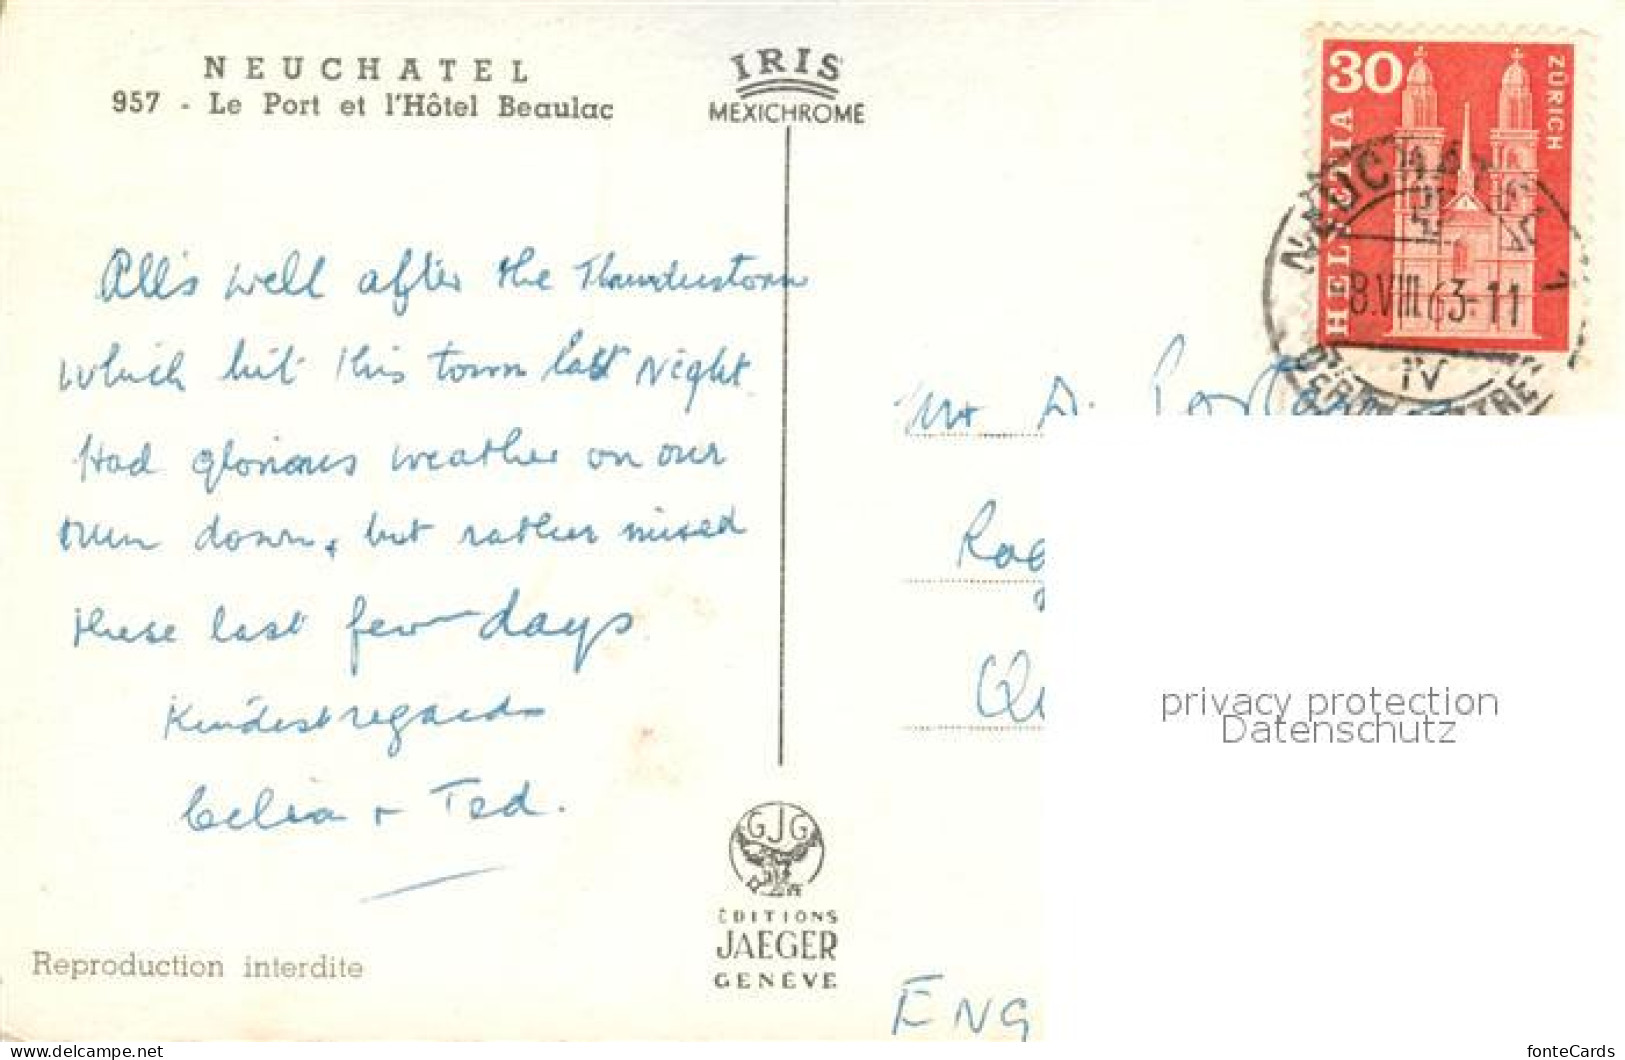 NEUCHATEL
957 - Le Port et l'Hôtel Beaulac
IRIS
MEXICHROME
30
HELVETIA
ZÜRICH
8.VIII.63-11
IV
All's well after the Thunderstorm
which hit this town last Night
Had glorious weather on our
run down, but rather mixed
these last few days
Kindest regards
Celia + Ted.
Mr D.
Rog
Qu
ENG
GJG
ÉDITIONS
JAEGER
GENÈVE
Reproduction interdite
privacy protection
Datenschutz
https://www.delcampe.net
fonteCards